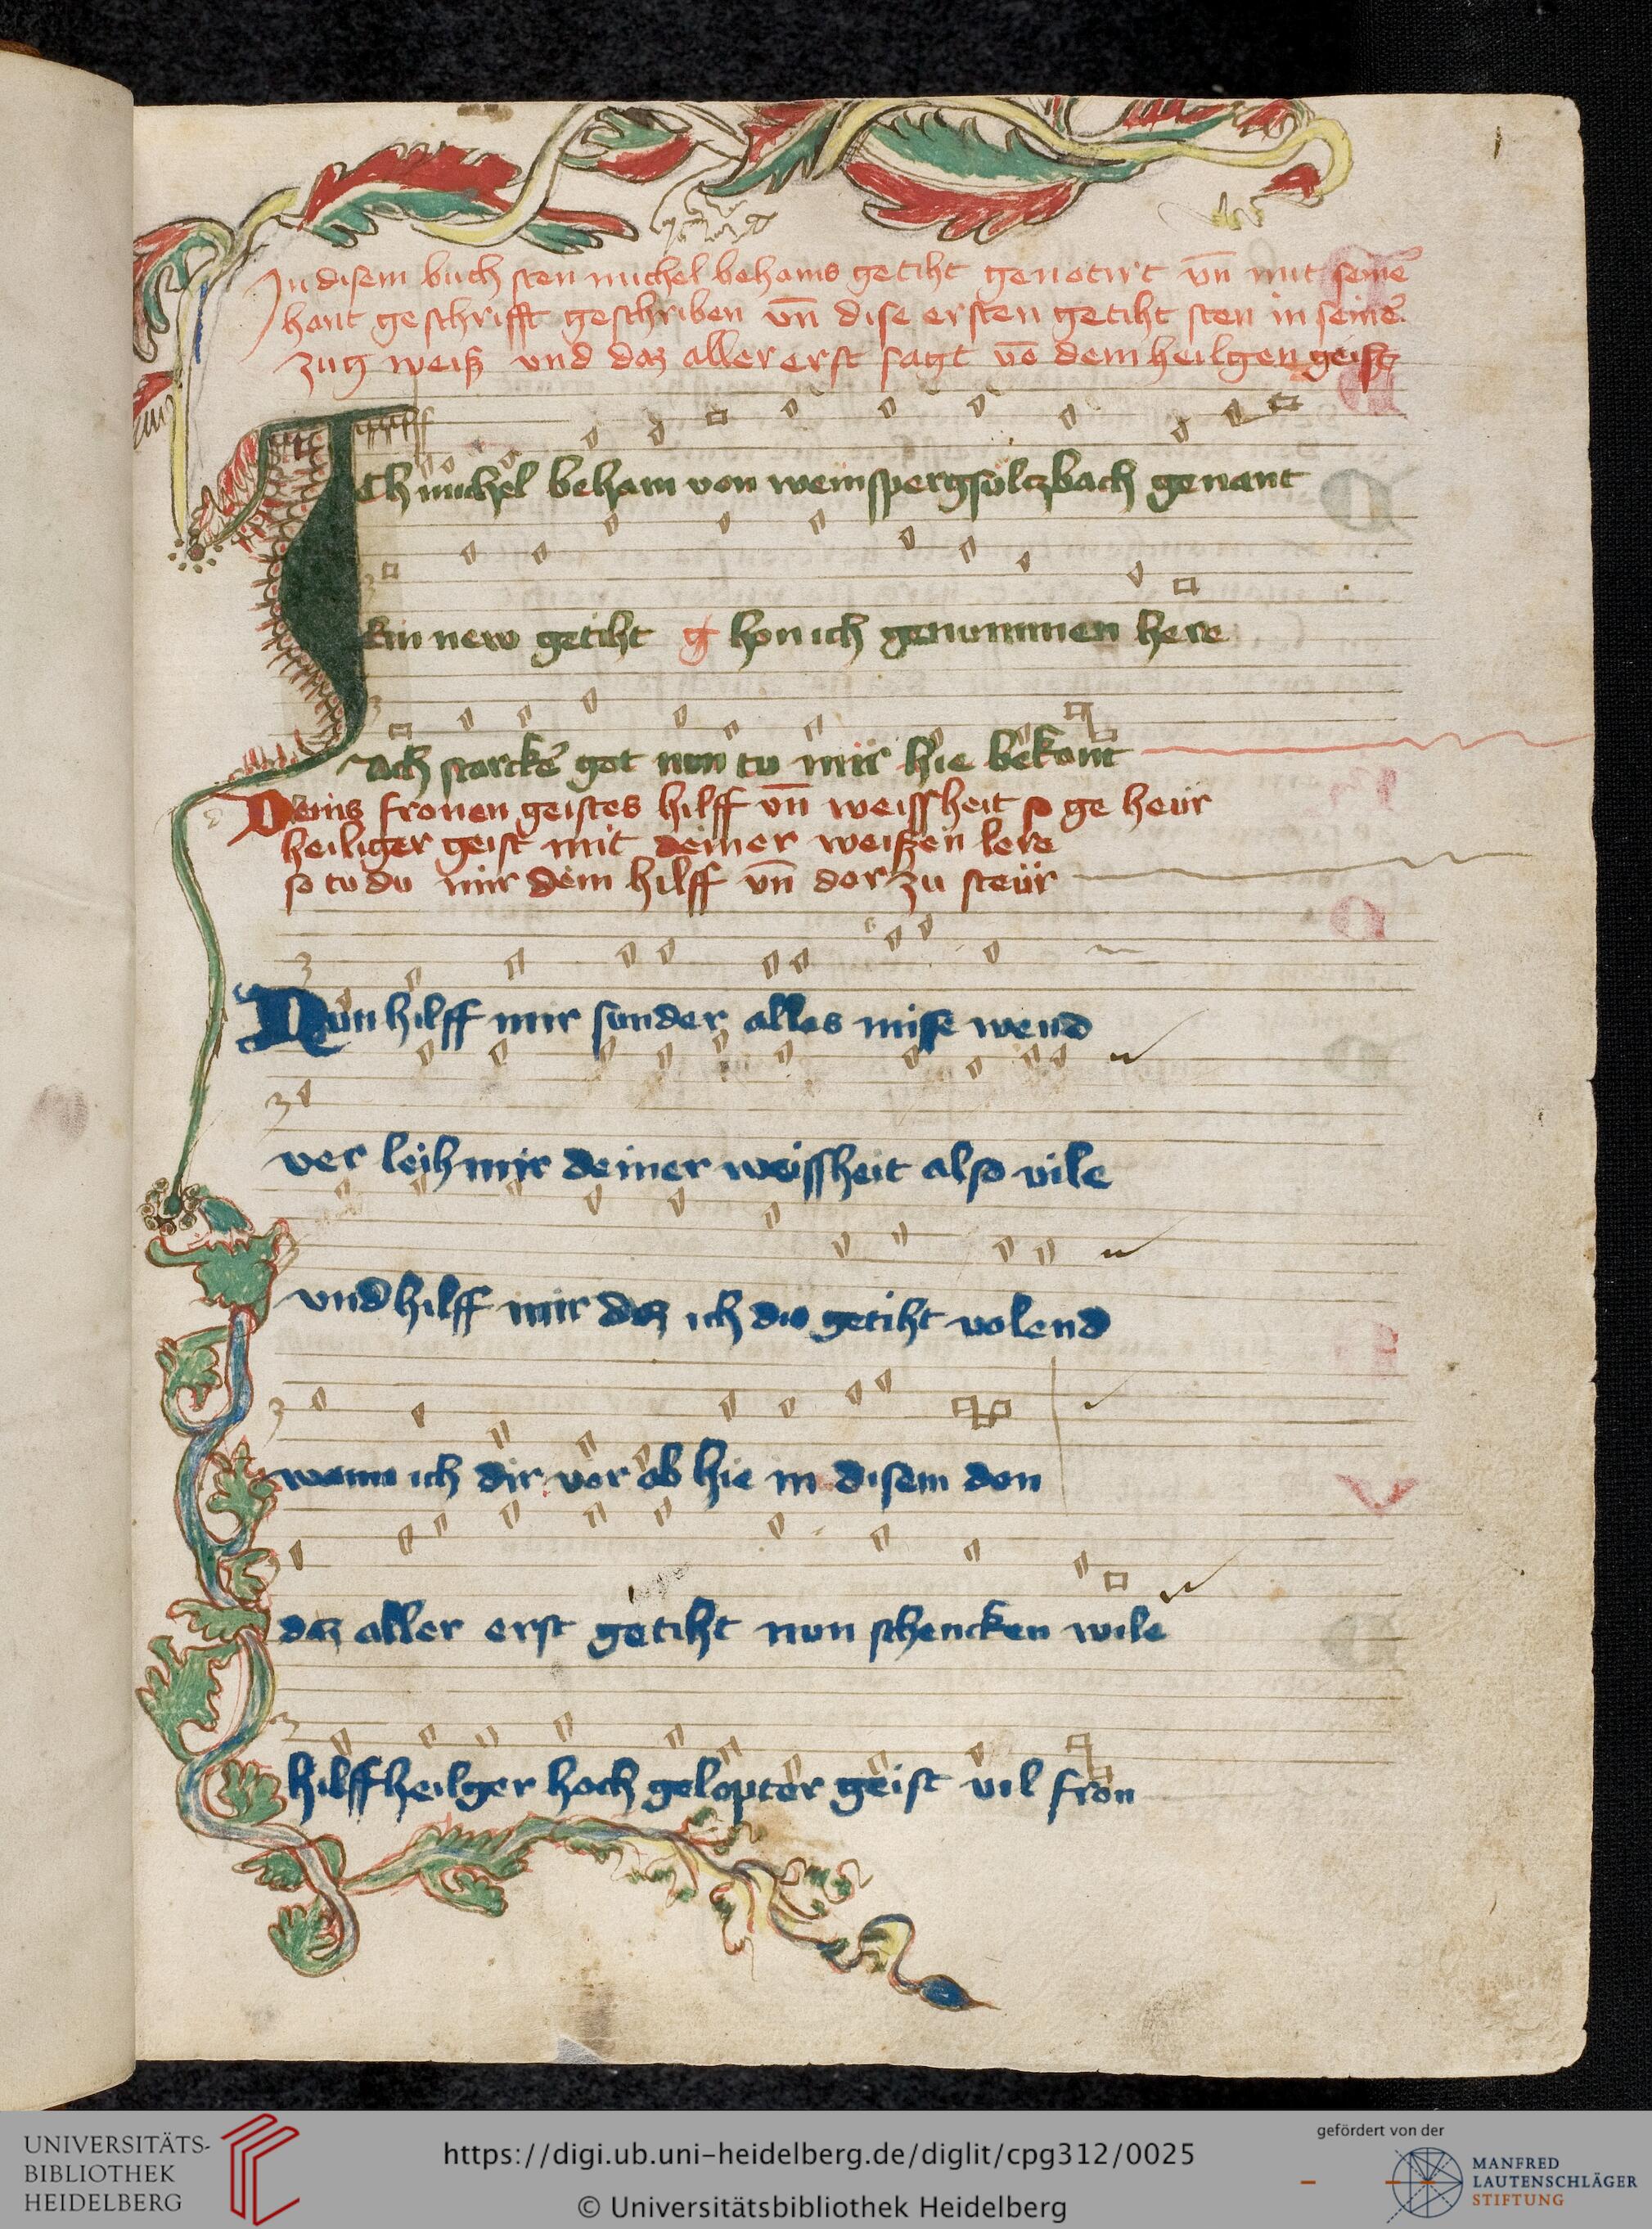 1
In disem buch sten michel behams getiht genotirt vn̄ mit seine᷑
hant geschrifft geschriben vn̄ dise ersten getiht sten in seine᷑
zug weiß vnd daz aller erst sagt vō dem heilgen geist
ICh michel beham von weinspergsulczbach genant
Ein new getiht hon ich genummen here
Ach starcke᷑ got nun tu mir hie bekant
Deins fronen geistes hilff vn̄ weissheit so ge heür
heiliger geist mit deiner weißen lere
so tu du mir dem hilff vn̄ dar zu steür
Nun hilff mir sunder alles misse wend
ver leih mir deiner weissheit also vile
vnd hilff mir daz ich dis getiht volend
wann ich dir vor ab hie in disem don
daz aller erst getiht nun schencken wile
hilff heilger hoch gelopter geist vil fron
UNIVERSITÄTS-
BIBLIOTHEK
HEIDELBERG
https://digi.ub.uni-heidelberg.de/diglit/cpg312/0025
© Universitätsbibliothek Heidelberg
gefördert von der
MANFRED
LAUTENSCHLÄGER
STIFTUNG